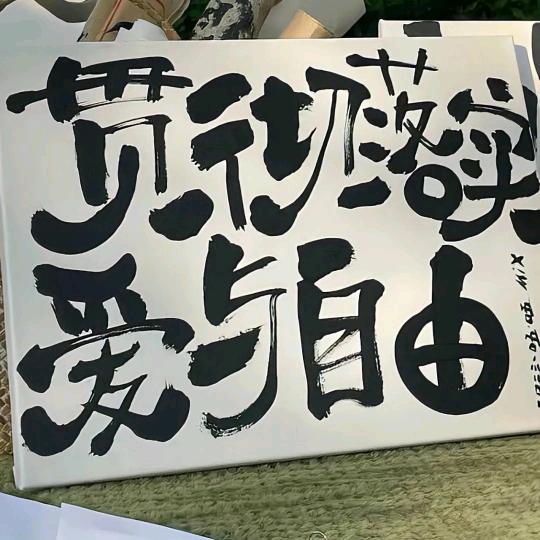 贯彻落实
爱与自由